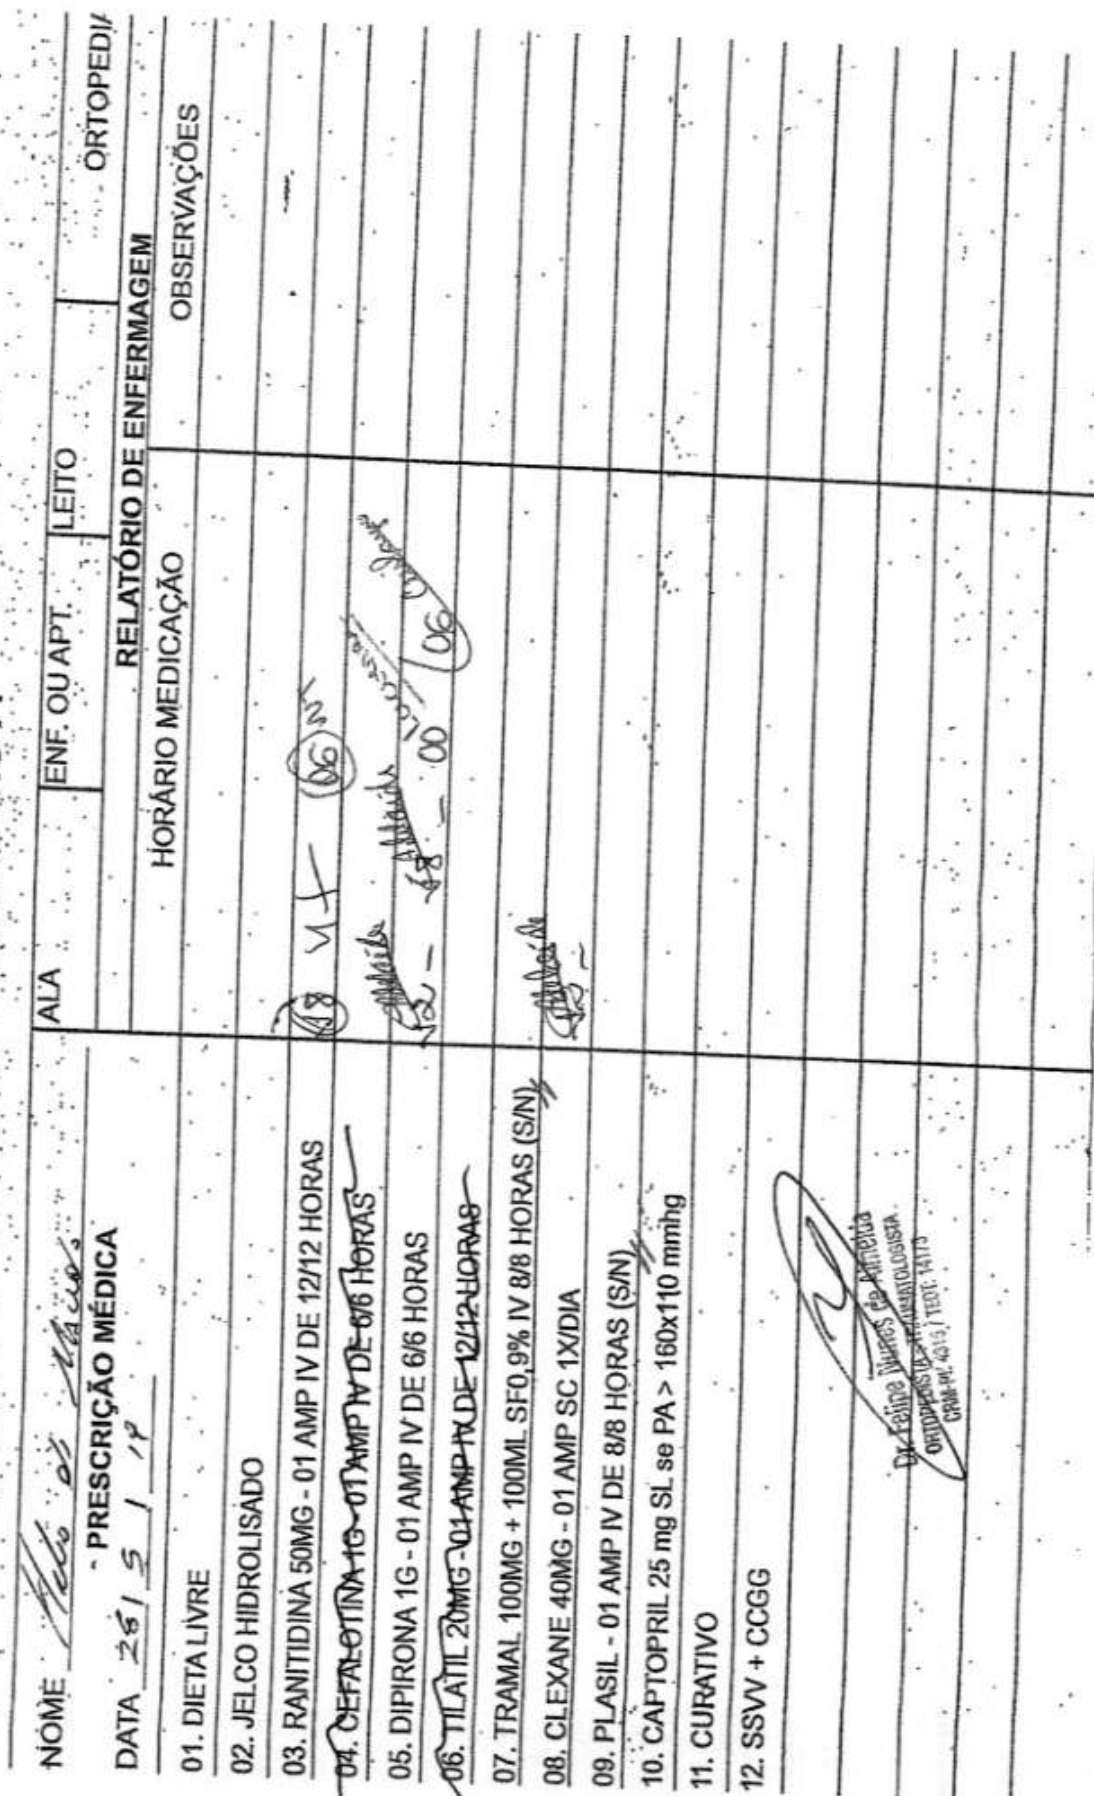 NOME
ALA ENF. OU APT. LEITO ORTOPEDIA
PRESCRIÇÃO MÉDICA RELATÓRIO DE ENFERMAGEM
DATA 28 / 5 / HORÁRIO MEDICAÇÃO OBSERVAÇÕES
01. DIETA LIVRE
02. JELCO HIDROLISADO
03. RANITIDINA 50MG - 01 AMP IV DE 12/12 HORAS 18 06
04. CEFALOTINA 1G - 01 AMP IV DE 6/6 HORAS
05. DIPIRONA 1G - 01 AMP IV DE 6/6 HORAS 12 - 18 - 00 06
06. TILATIL 20MG - 01 AMP IV DE 12/12 HORAS
07. TRAMAL 100MG + 100ML SF0,9% IV 8/8 HORAS (S/N)
08. CLEXANE 40MG - 01 AMP SC 1X/DIA
09. PLASIL - 01 AMP IV DE 8/8 HORAS (S/N)
10. CAPTOPRIL 25 mg SL se PA > 160x110 mmhg
11. CURATIVO
12. SSVV + CCGG
Dr. Felipe Nunes de Almeida
ORTOPEDISTA-TRAUMATOLOGISTA
CRM-PI: 4016 / TEOT: 14173